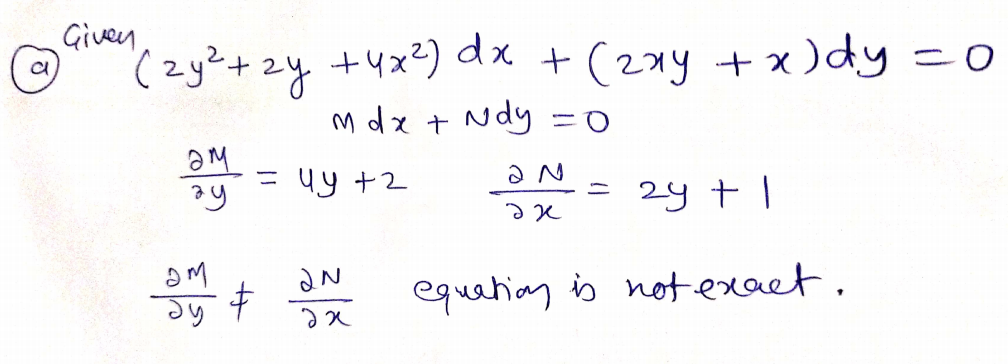 (a) Given (2y² + 2y + 4x²) dx + (2xy + x) dy = 0
M dx + N dy = 0
∂M/∂y = 4y + 2    ∂N/∂x = 2y + 1
∂M/∂y ≠ ∂N/∂x equation is not exact.